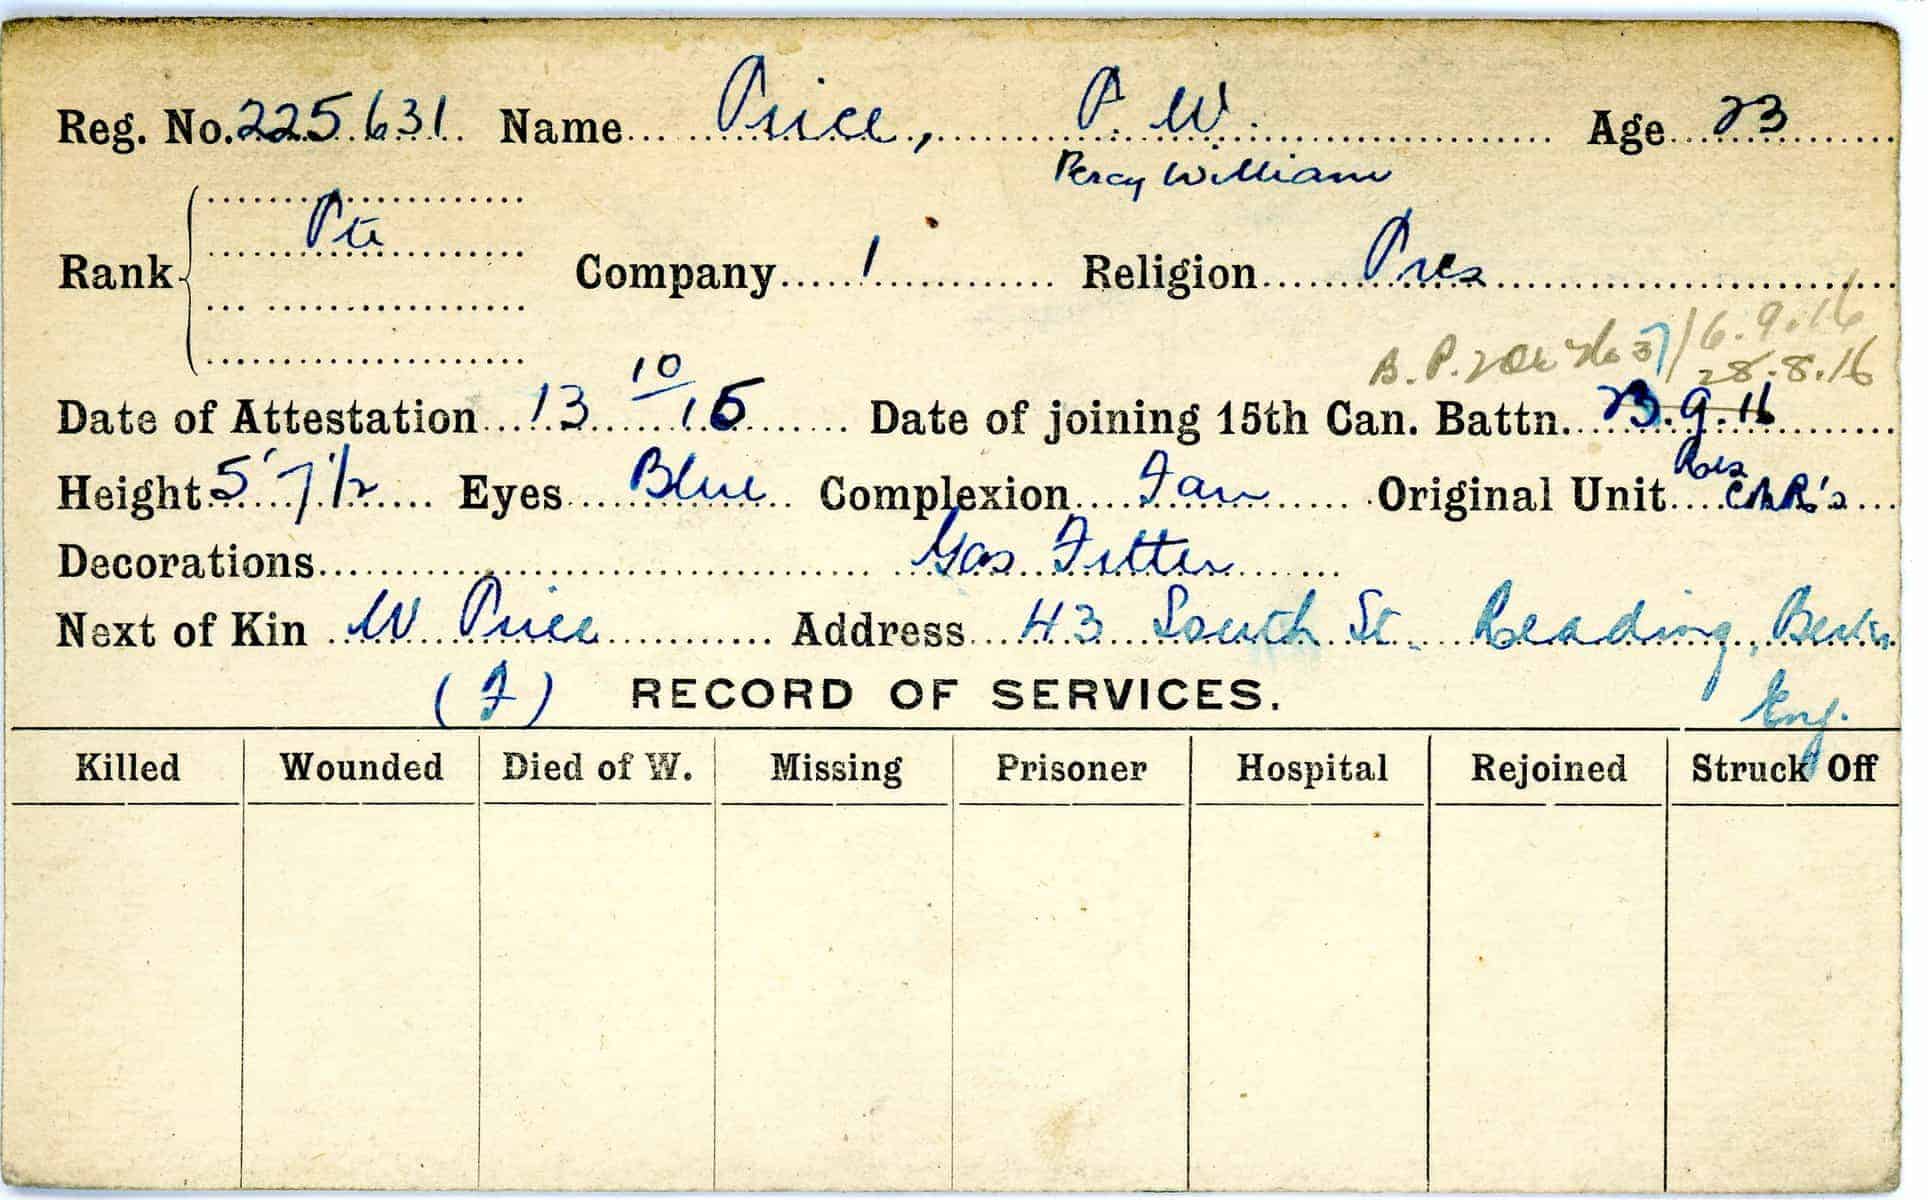 Reg. No. 225631 Name Price, P. W. Age 23
Percy William
Rank Pte Company 1 Religion Pres
B. P. 37 16.9.16
28.8.16
Date of Attestation 13 10/15 Date of joining 15th Can. Battn. 23.9.16
Height 5' 7 1/2 Eyes Blue Complexion Fair Original Unit Res CMR's
Decorations Gas Fitter
Next of Kin W Price Address 43 South St. Reading, Berks
Eng.
(F) RECORD OF SERVICES.
Killed Wounded Died of W. Missing Prisoner Hospital Rejoined Struck Off